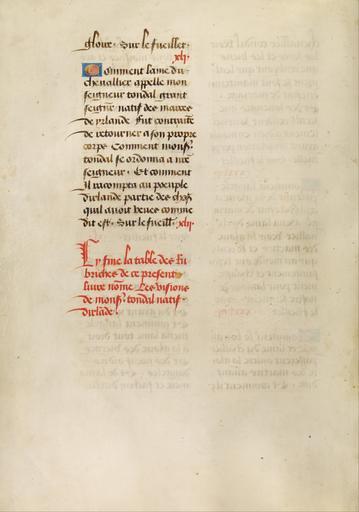 gloire. Sur le fueillet.
xli.
Comment lame du
chevallier appelle mon
seigneur tondal grant
seigneur natif des marces
de yrlande. Fut contrainte
de retourner a son propre
corps. Comment mons.
tondal se ordonna a nre
seigneur. Et comment
il racompta au poeuple
dirlande partie des choses
quil avoit veues comme
dit est. Sur le fueill. xlii.
Cy fine la table des Ru
briches de ce present
livre nome Les visions
de mons. tondal natif
dirlade.